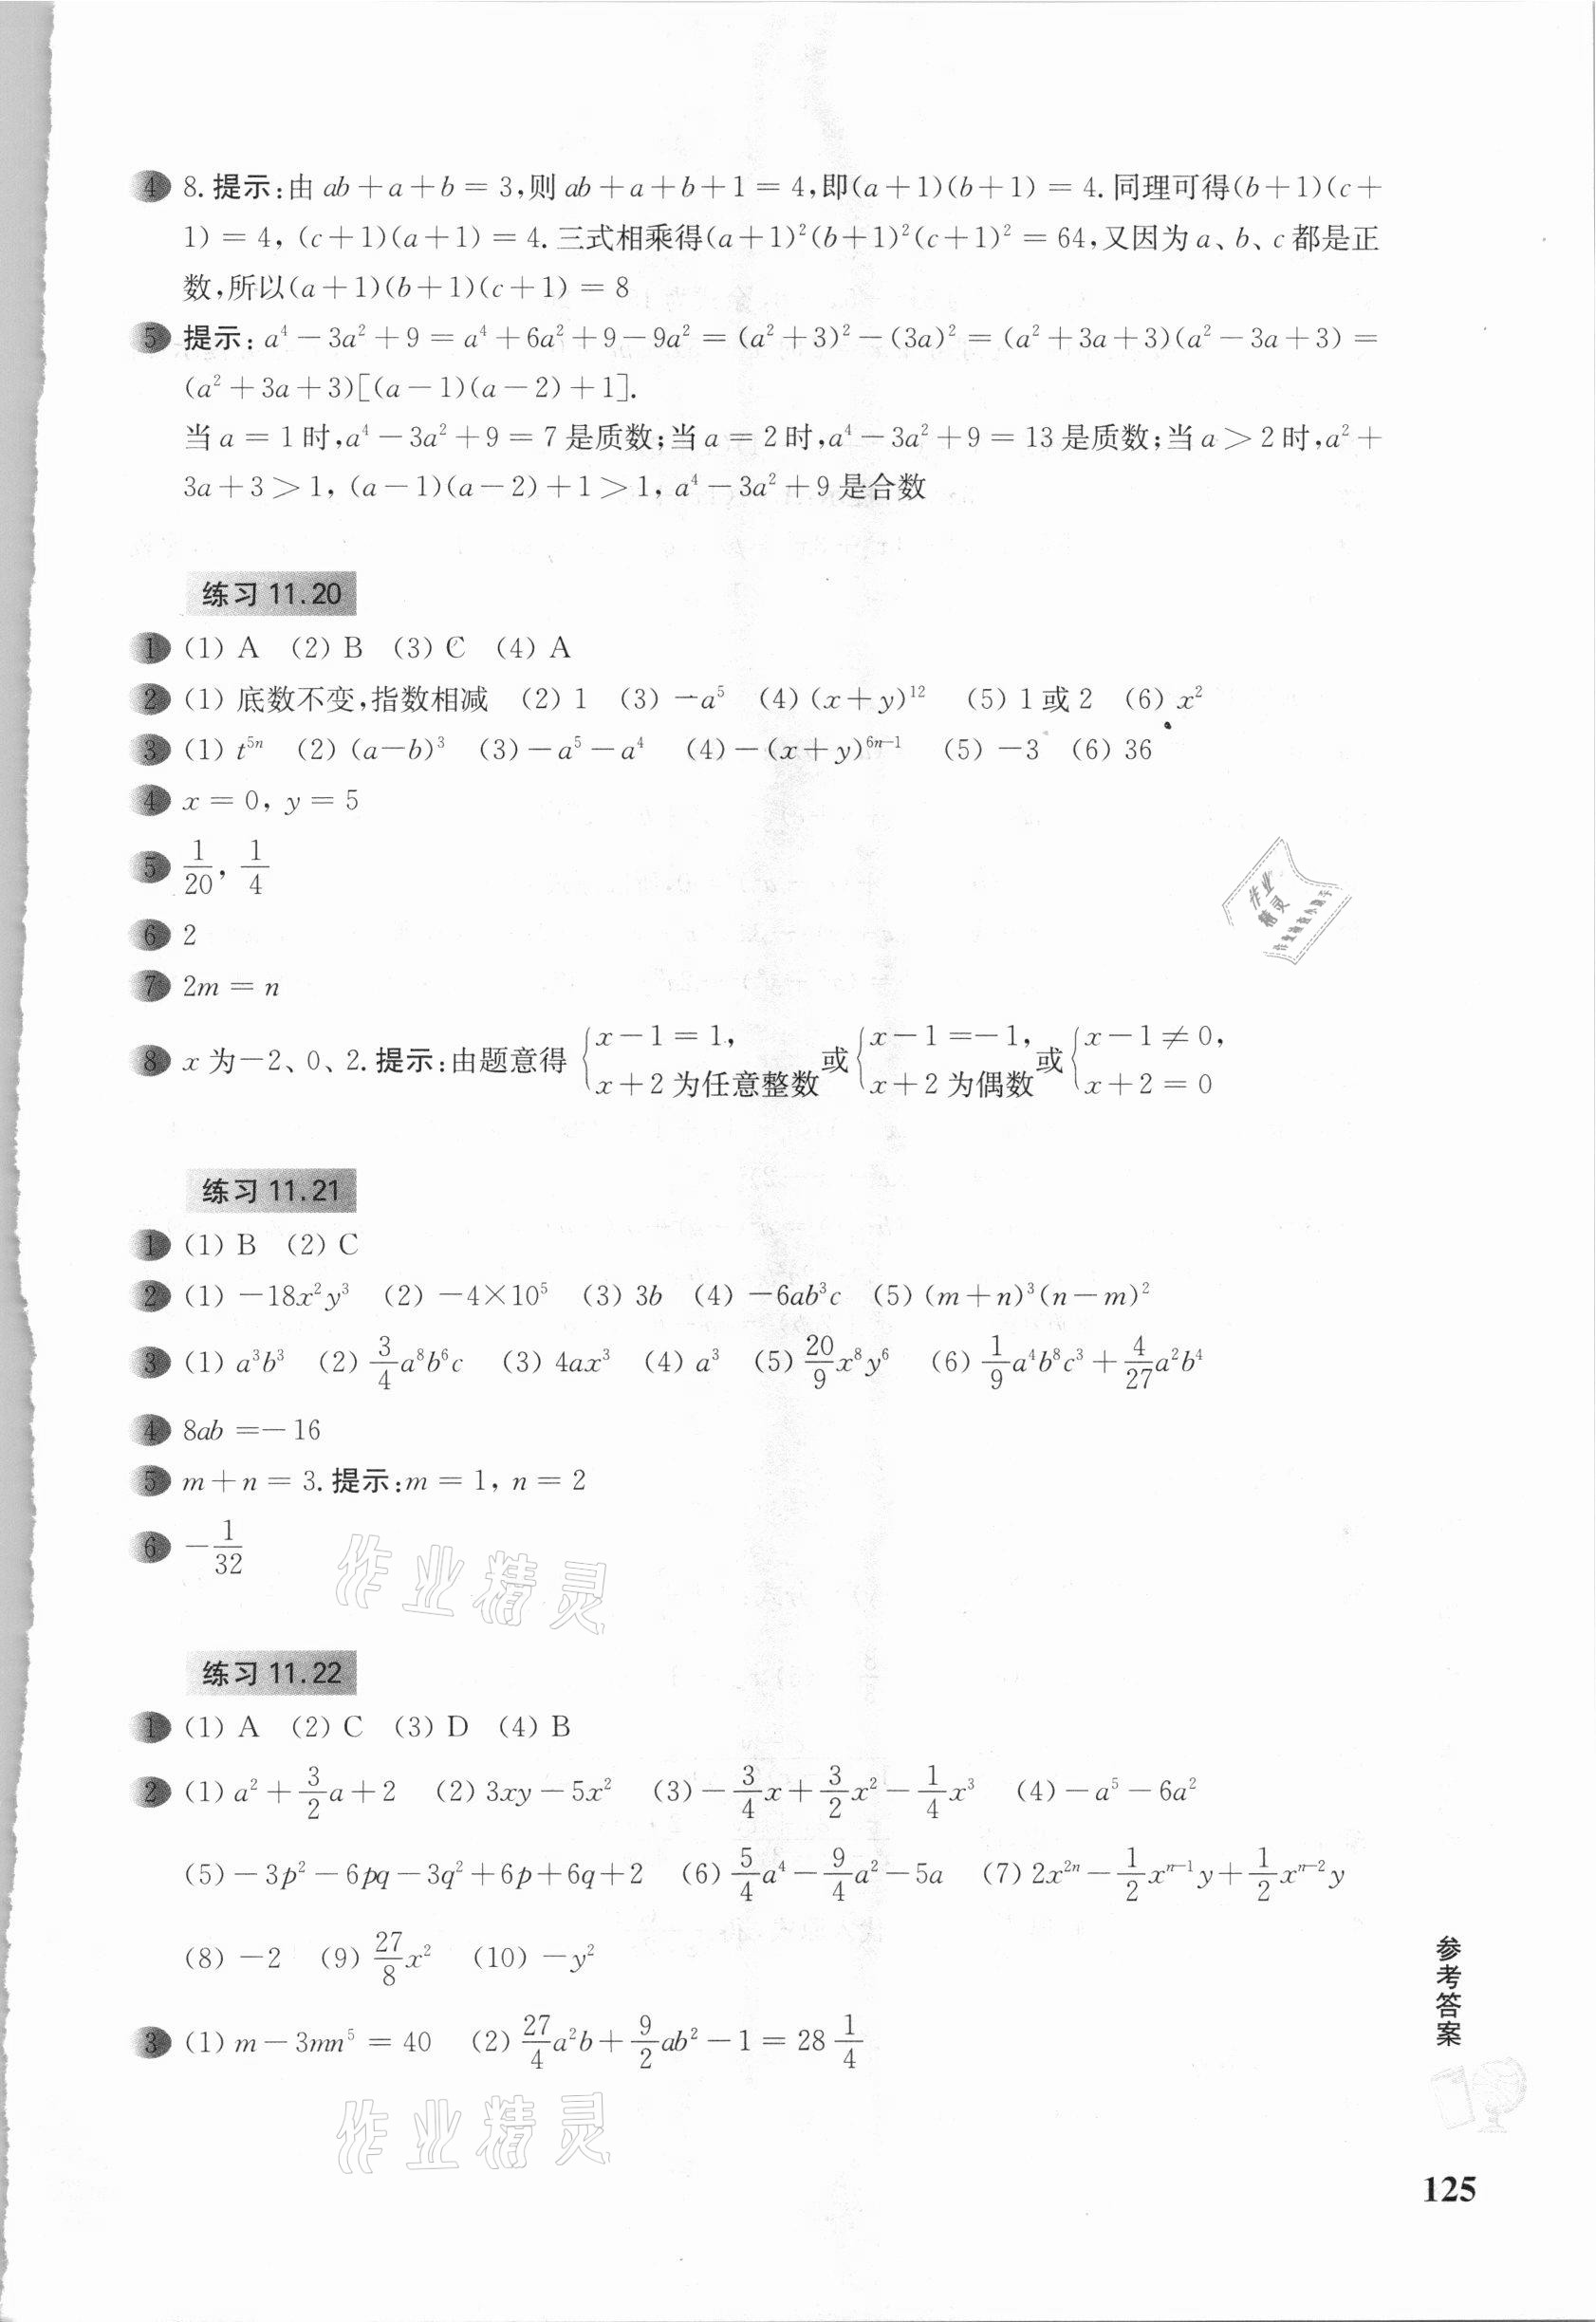 4 8. 提示:由 ab+a+b=3,则 ab+a+b+1=4,即(a+1)(b+1)=4. 同理可得(b+1)(c+
1)=4, (c+1)(a+1)=4. 三式相乘得(a+1)²(b+1)²(c+1)²=64,又因为 a、b、c 都是正
数,所以(a+1)(b+1)(c+1)=8
5 提示: a⁴-3a²+9=a⁴+6a²+9-9a²=(a²+3)²-(3a)²=(a²+3a+3)(a²-3a+3)=
(a²+3a+3)[(a-1)(a-2)+1].
当 a=1 时,a⁴-3a²+9=7 是质数;当 a=2 时,a⁴-3a²+9=13 是质数;当 a>2 时,a²+
3a+3>1, (a-1)(a-2)+1>1, a⁴-3a²+9 是合数
练习 11.20
1 (1) A (2) B (3) C (4) A
2 (1) 底数不变,指数相减 (2) 1 (3) -a⁵ (4) (x+y)¹² (5) 1 或 2 (6) x²
3 (1) t⁵ⁿ (2) (a-b)³ (3) -a⁵-a⁴ (4) -(x+y)⁶ⁿ⁻¹ (5) -3 (6) 36
4 x=0, y=5
5 1/20, 1/4
6 2
7 2m=n
8 x 为-2、0、2. 提示:由题意得 {x-1=1, x+2 为任意整数 或 {x-1=-1, x+2 为偶数 或 {x-1≠0, x+2=0
作业
精灵
练习 11.21
1 (1) B (2) C
2 (1) -18x²y³ (2) -4×10⁵ (3) 3b (4) -6ab³c (5) (m+n)³(n-m)²
3 (1) a³b³ (2) 3/4 a⁸b⁶c (3) 4ax³ (4) a³ (5) 20/9 x⁸y⁶ (6) 1/9 a⁴b⁸c³ + 4/27 a²b⁴
4 8ab=-16
5 m+n=3. 提示:m=1, n=2
6 -1/32
作业精灵
练习 11.22
1 (1) A (2) C (3) D (4) B
2 (1) a²+3/2 a+2 (2) 3xy-5x² (3) -3/4 x+3/2 x²-1/4 x³ (4) -a⁵-6a²
(5) -3p²-6pq-3q²+6p+6q+2 (6) 5/4 a⁴-9/4 a²-5a (7) 2x²ⁿ-1/2 xⁿ⁻¹y+1/2 xⁿ⁻²y
(8) -2 (9) 27/8 x² (10) -y²
3 (1) m-3mn⁵=40 (2) 27/4 a²b+9/2 ab²-1=28 1/4
作业精灵
参考答案
125